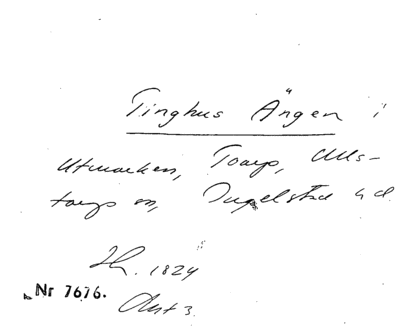 Tinghus Ängen i
Utmarken, Toarp, Ulls-
tarps sn, Ingelstad hd.
Lh. 1824
Nr 7676.
Akt 3.